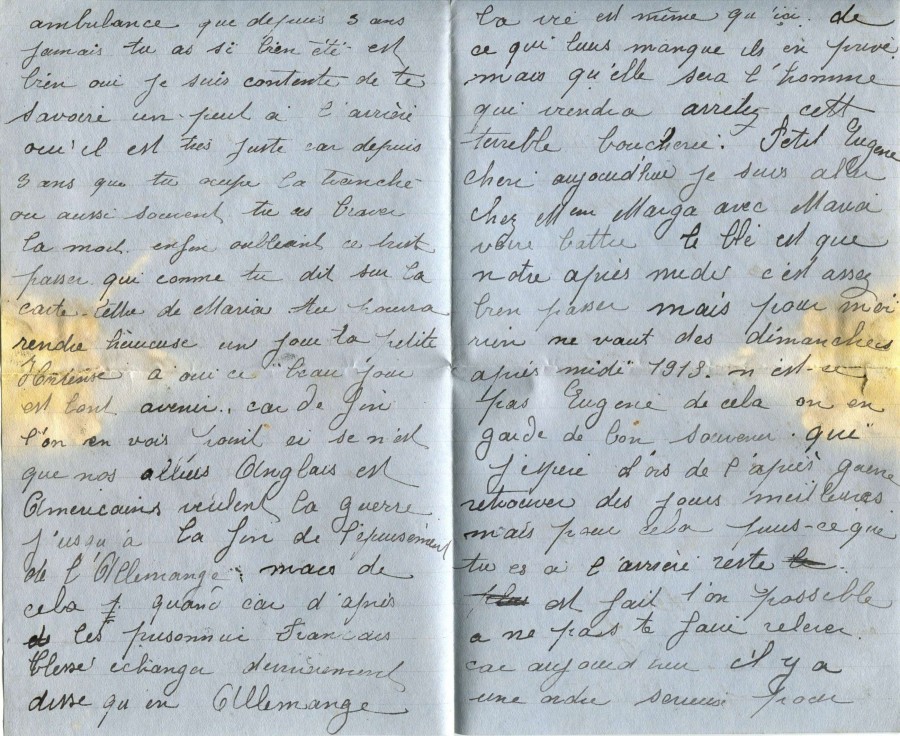 ambulance que depuis 3 ans
jamais tu as si bien été est
bien oui je suis contente de te
savoire un peut a l'arrière
qu'il est tres juste car depuis
3 ans que tu ocupe la tranché
ou aussi souvent tu as braver
la mort enfin oubliant ce triste
passer qui comme tu dit sur la
carte lettre de Maria tu pourra
rendre heureuse un jour ta petite
Hortense a oui ce beau jour
est tant avenir.. car de fin
l'on en vois point si se n'est
que nos alliers Anglais est
Americains veulent la guerre
j'usqu'à la fin de l'épuisement
de l'Allemange. mais de
cela quand car d'après
les prisonnier Francais
blessé échanger dernièrement
disse qu'en Allemange
la vie est même qu'ici de
ce qui leurs manque ils en privé
mais qu'elle sera l'homme
qui viendra arretez cett
terrible boucherie. Petit Eugene
cheri aujourd'hui je suis aller
chez Mm Marga avec Maria
voire battre le blé est que
notre après midi c'est assez
bien passer mais pour moi
rien ne vaut des dimanches
après midi 1913. n'est-ce
pas Eugene de cela on en
garde de bon souvenir que
j'espere d'ors de l'après guerre
retrouver des jours meilleures
mais pour cela puis-ce que
tu es a l'arrière reste
est fait l'on possible
a ne pas te faire relever
car aujourd'hui il y a
une ordre serieuse pour